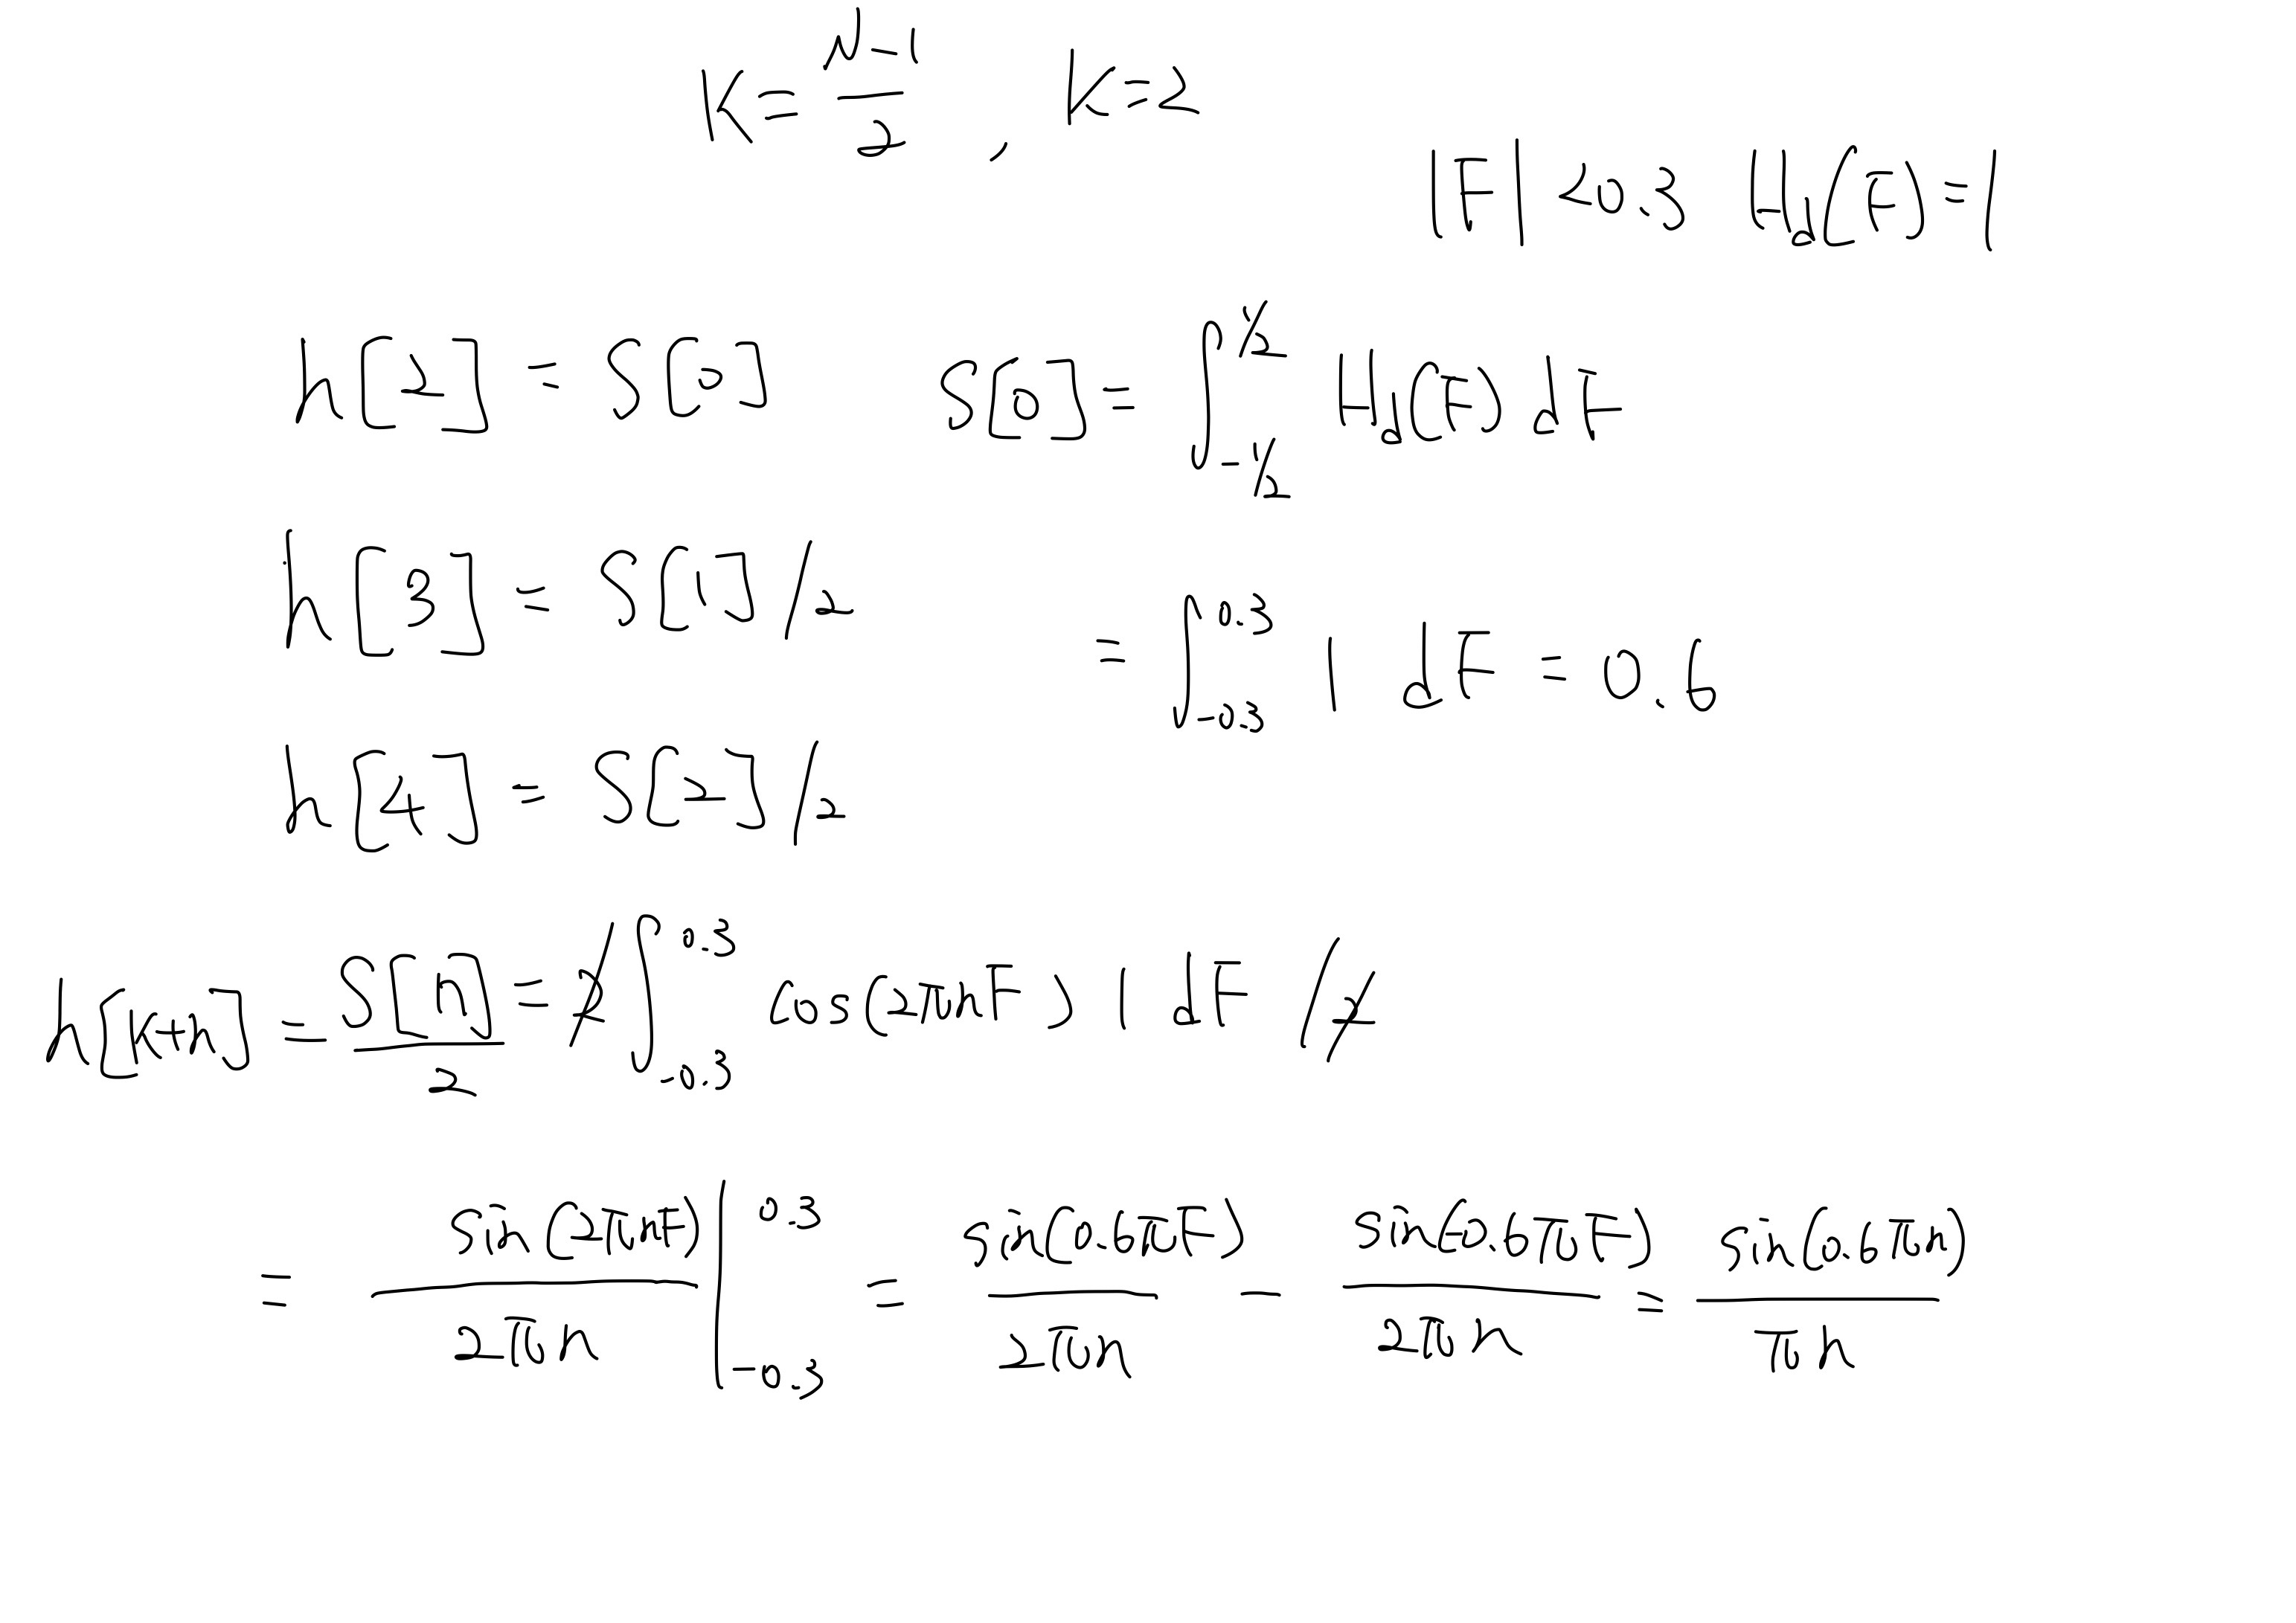 K = (N-1)/2 , K=2
|F| < 0.3 H_d(F) = 1
h[2] = S[0] S[0] = ∫_{-1/2}^{1/2} H_d(F) dF
h[3] = S[1]/2 = ∫_{-0.3}^{0.3} 1 dF = 0.6
h[4] = S[2]/2
h[k+n] = S[n]/2 = 2 ∫_{-0.3}^{0.3} cos(2πnF) 1 dF /2
= sin(2πnF)/2πn |_{-0.3}^{0.3} = sin(0.6πF)/2πn - sin(-0.6πF)/2πn = sin(0.6πn)/πn